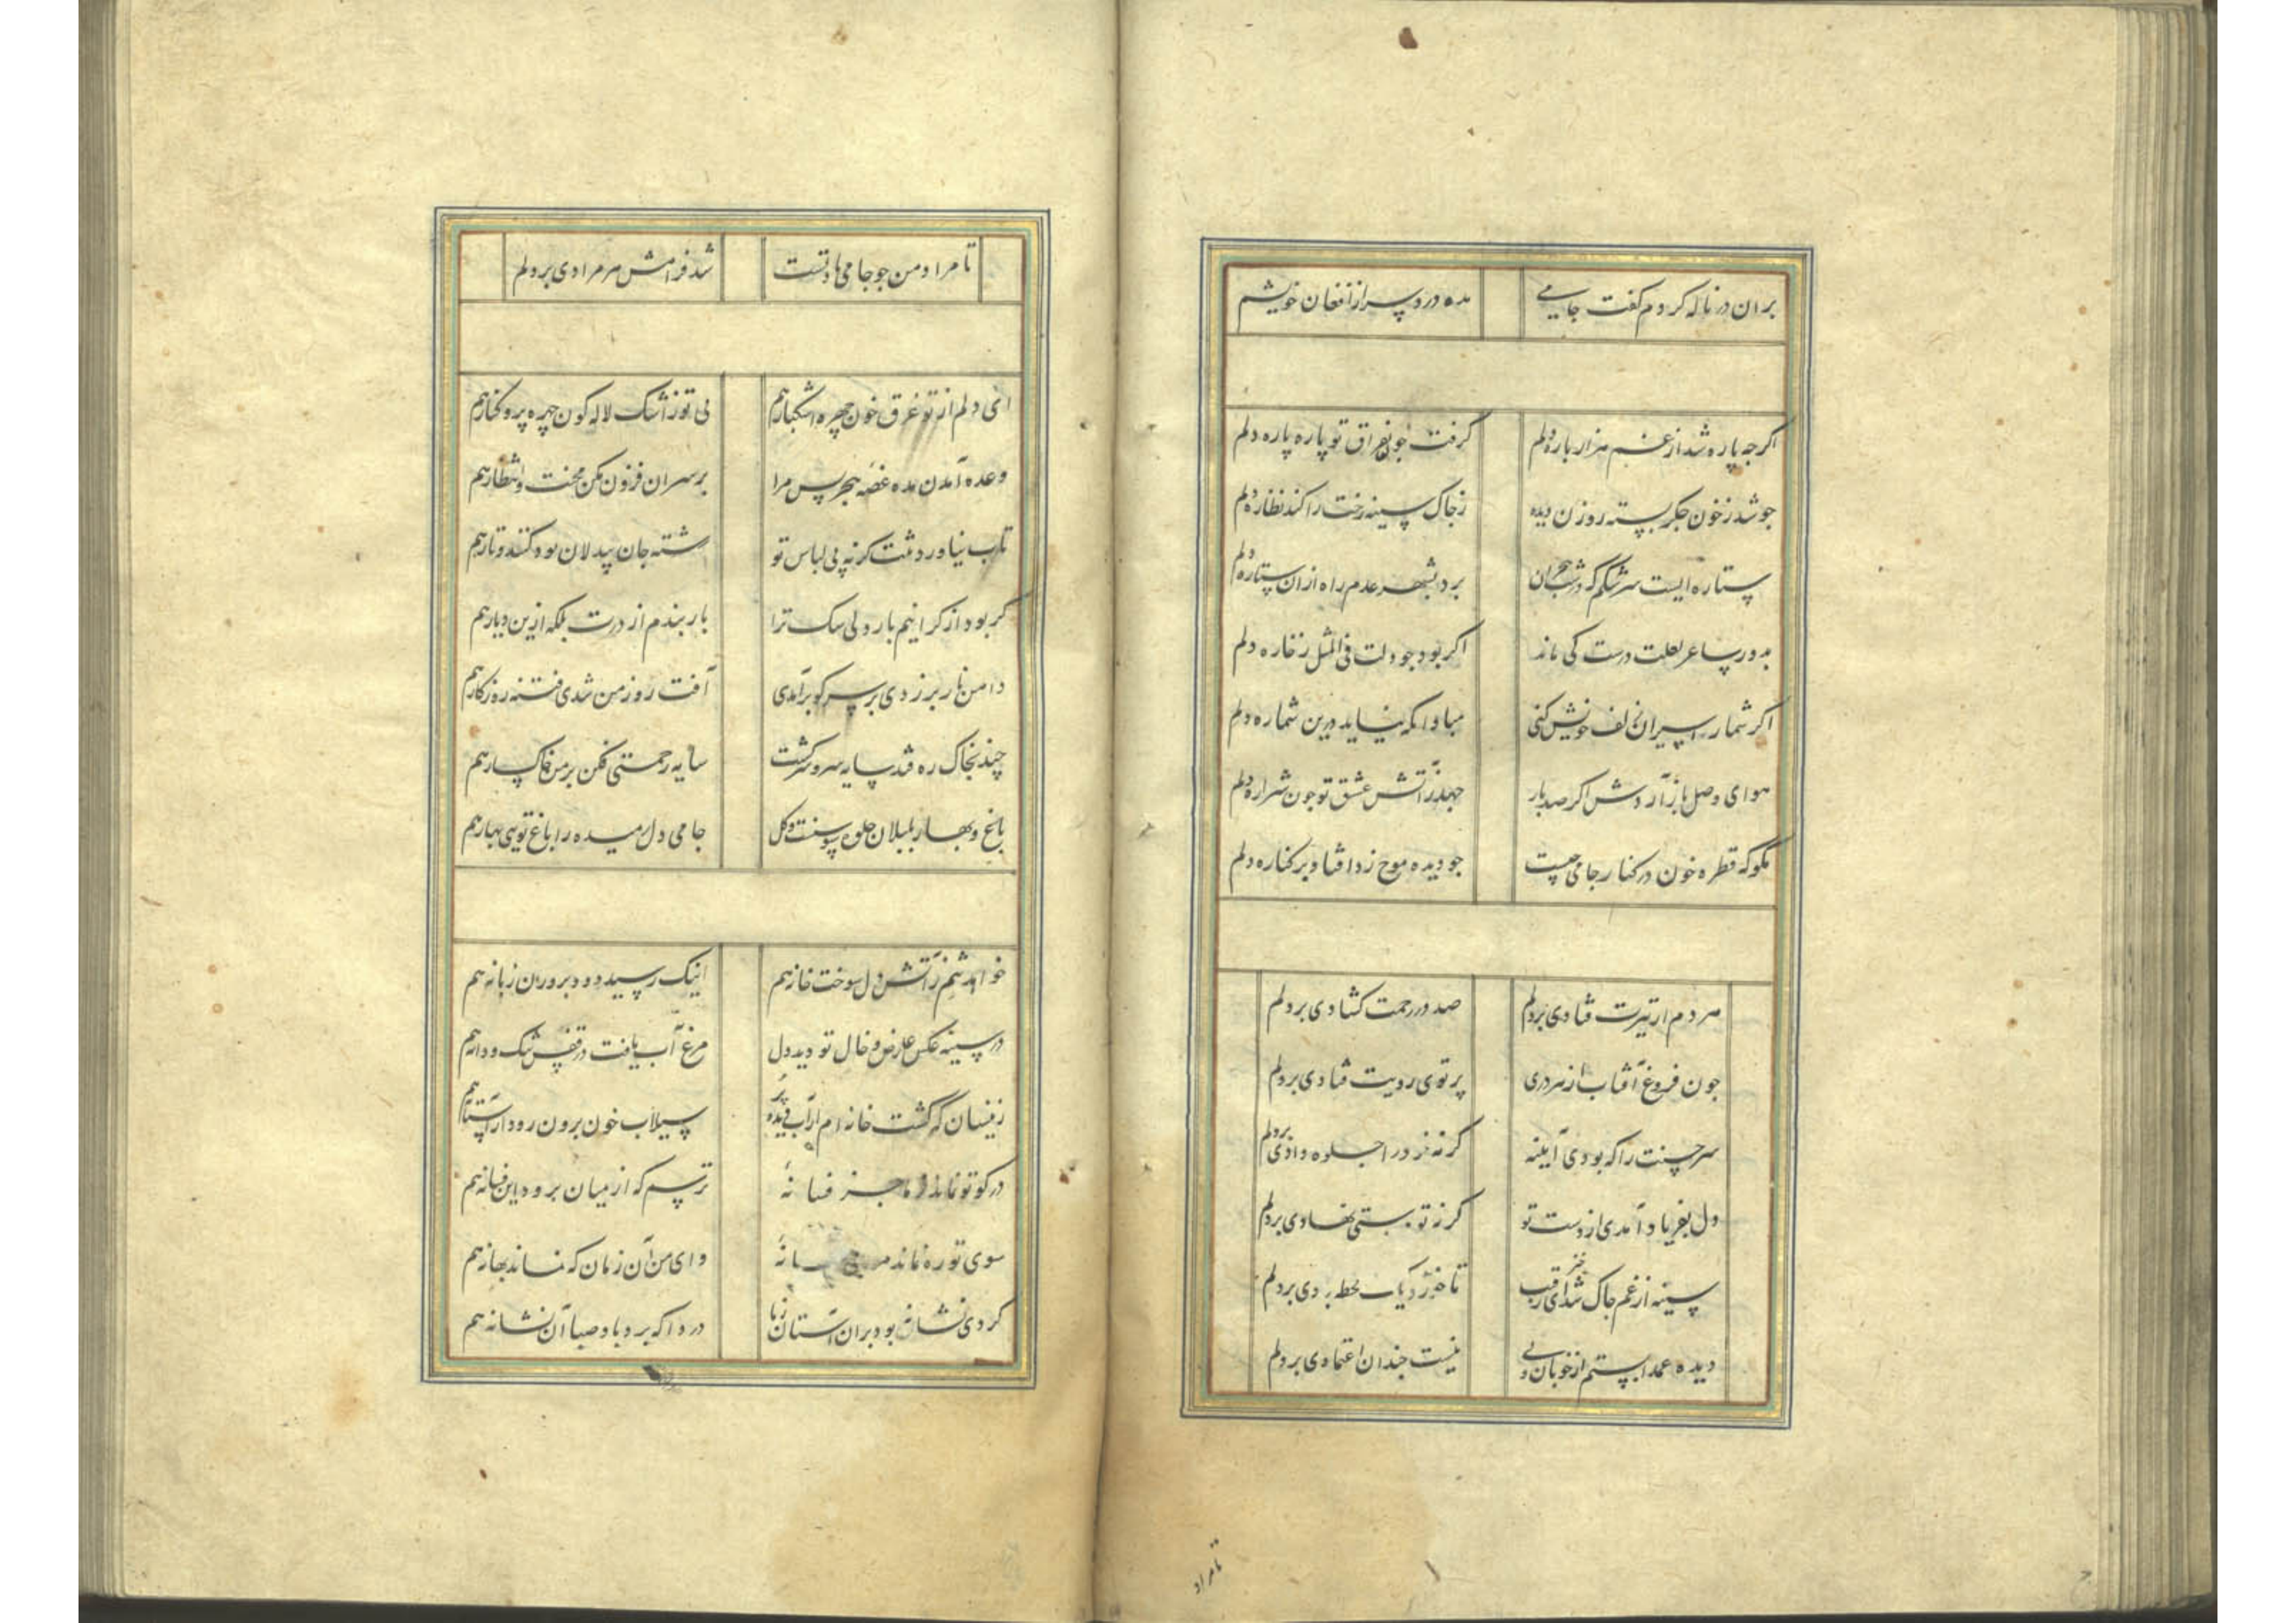 بران در ناله کردم گفت جامی
مده دردسر از افغان خویشم
اگرچه پاره شد از غم هزار باره دلم
گرفت خو بفراق تو پاره پاره دلم
جو شد ز خون جکر بسته روزن دیده
ز جاک سینه رخت را کند نظاره دلم
ستاره ایست سرشکم که در شب هجران
برد بشهر عدم راه ازان ستاره دلم
بدور ساغر لعلت درست کی ماند
اکر بود جو دلت فی المثل ز خاره دلم
اکر شمار اسیران زلف خویش کنی
مباد انکه نیاید درین شماره دلم
هوای وصل باز آردش اکر صد بار
جهد ز آتش عشق تو جون شراره دلم
مگو که قطره خون در کنار جامی جیست
جو دیده موج زد افتاد بر کناره دلم
هر دم از تیرت فتادی بر دلم
صد در رحمت کشادی بر دلم
جون فروغ آفتاب از هر دری
پرتوی رویت فتادی بر دلم
سر حسنت را که بودی آینه
کر نه خود را جلوه دادی بر دلم
دل بفریاد آمدی از دست تو
کر نه تو دستی نهادی بر دلم
سینه از غم جاک شد ای رقیب
تا خورد یک لحظه بادی بر دلم
دیده عمدا بستم از خوبان ولی
نیست جندان اعتمادی بر دلم
تا مراد
تا مراد من جو جامی یاد تست
شد فرامش هر مرادی بر دلم
ای دلم از تو غرق خون چهره اشکبار هم
بی تو ز اشک لاله کون چهره پر و کنار هم
وعده آمدن مده غصه هجر بس مرا
بر سر ان فزون مکن محنت انتظار هم
تاب نیاورد تنت کر نه پی لباس تو
رشته جان بیدلان بود کنند و تار هم
کر بود از کرانیم بار دلی سک ترا
بار بندم از درت بلکه ازین دیار هم
دامن ناز بر زدی بر سر کو برآمدی
آفت روز من شدی فتنه روزکار هم
چند بخاک ره فتد سایه سرو سرکشت
سایه رحمتی فکن بر من خاکسار هم
باغ و بهار بلبلان جلوه سوسنست و کل
جامی دل رمیده را باغ تویی بهار هم
خواهد شبم ز آتش دل سوخت خانه هم
اینک رسید دود برون زبانه هم
در سینه عکس عارض و خال تو دید دل
مرغ آب یافت در قفس تنک و دانه هم
زینسان که گشت خانه ام از آب دیده پر
سیلاب خون برون رود از آستانه هم
در کوی تو نماند ز ما جز فسانه
ترسم که از میان برود این فسانه هم
سوی تو ره نماند مرا جز بهانه
وای من آن زمان که نماند بهانه هم
کردی نشانه بود بران آستان ز ما
دردا که برد باد صبا آن نشانه هم